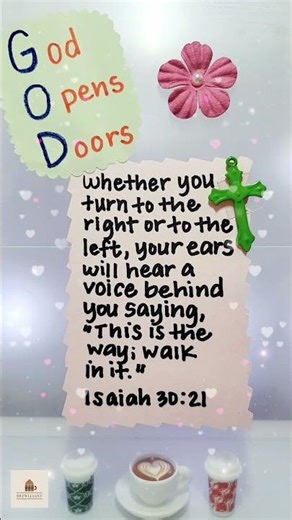 God
Opens
Doors
Whether you
turn to the
right or to the
left, your ears
will hear a
voice behind
you saying,
"This is the
way; walk
in it."
Isaiah 30:21